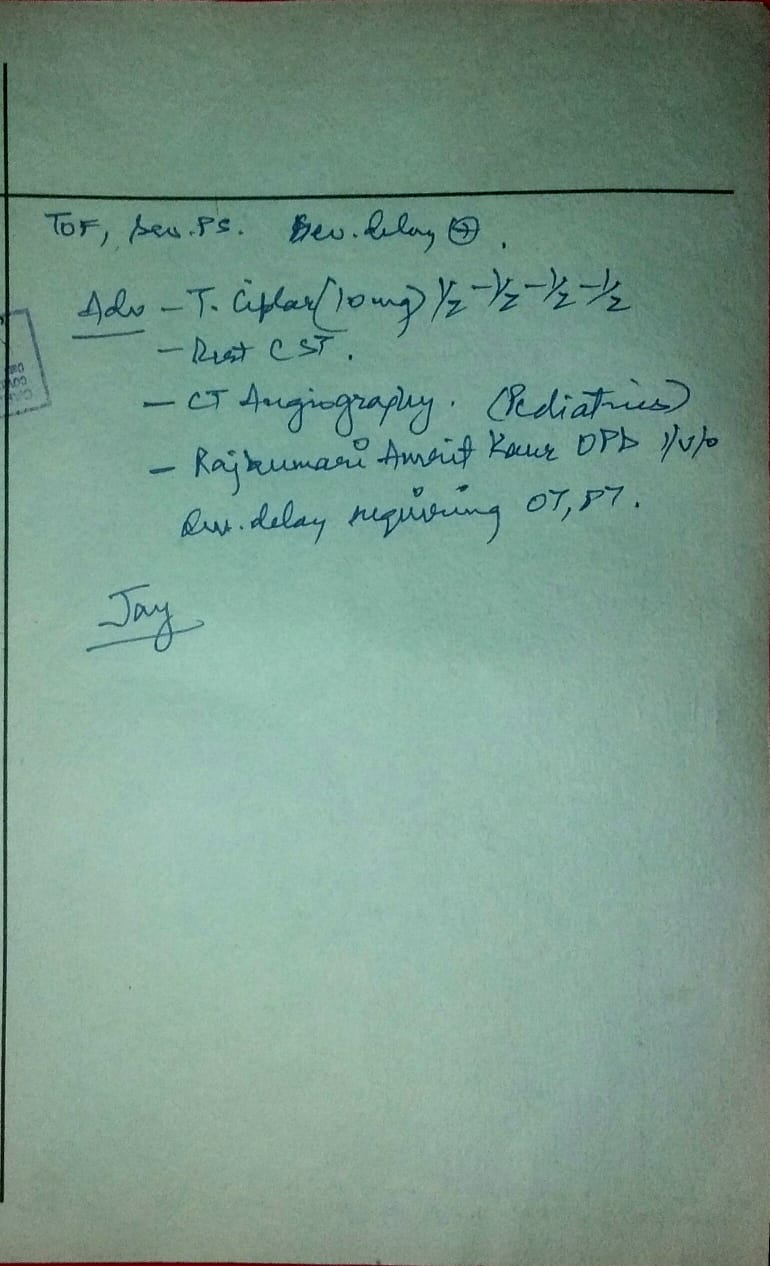 TOF, Sev. PS. Dev. delay ⊕.
Adv - T. Ciplar (10 mg) ½ - ½ - ½ - ½
- Rest CST.
- CT Angiography. (Pediatrics)
- Rajkumari Amrit Kaur OPD i/v/o
Dev. delay requiring OT, PT.
Jay